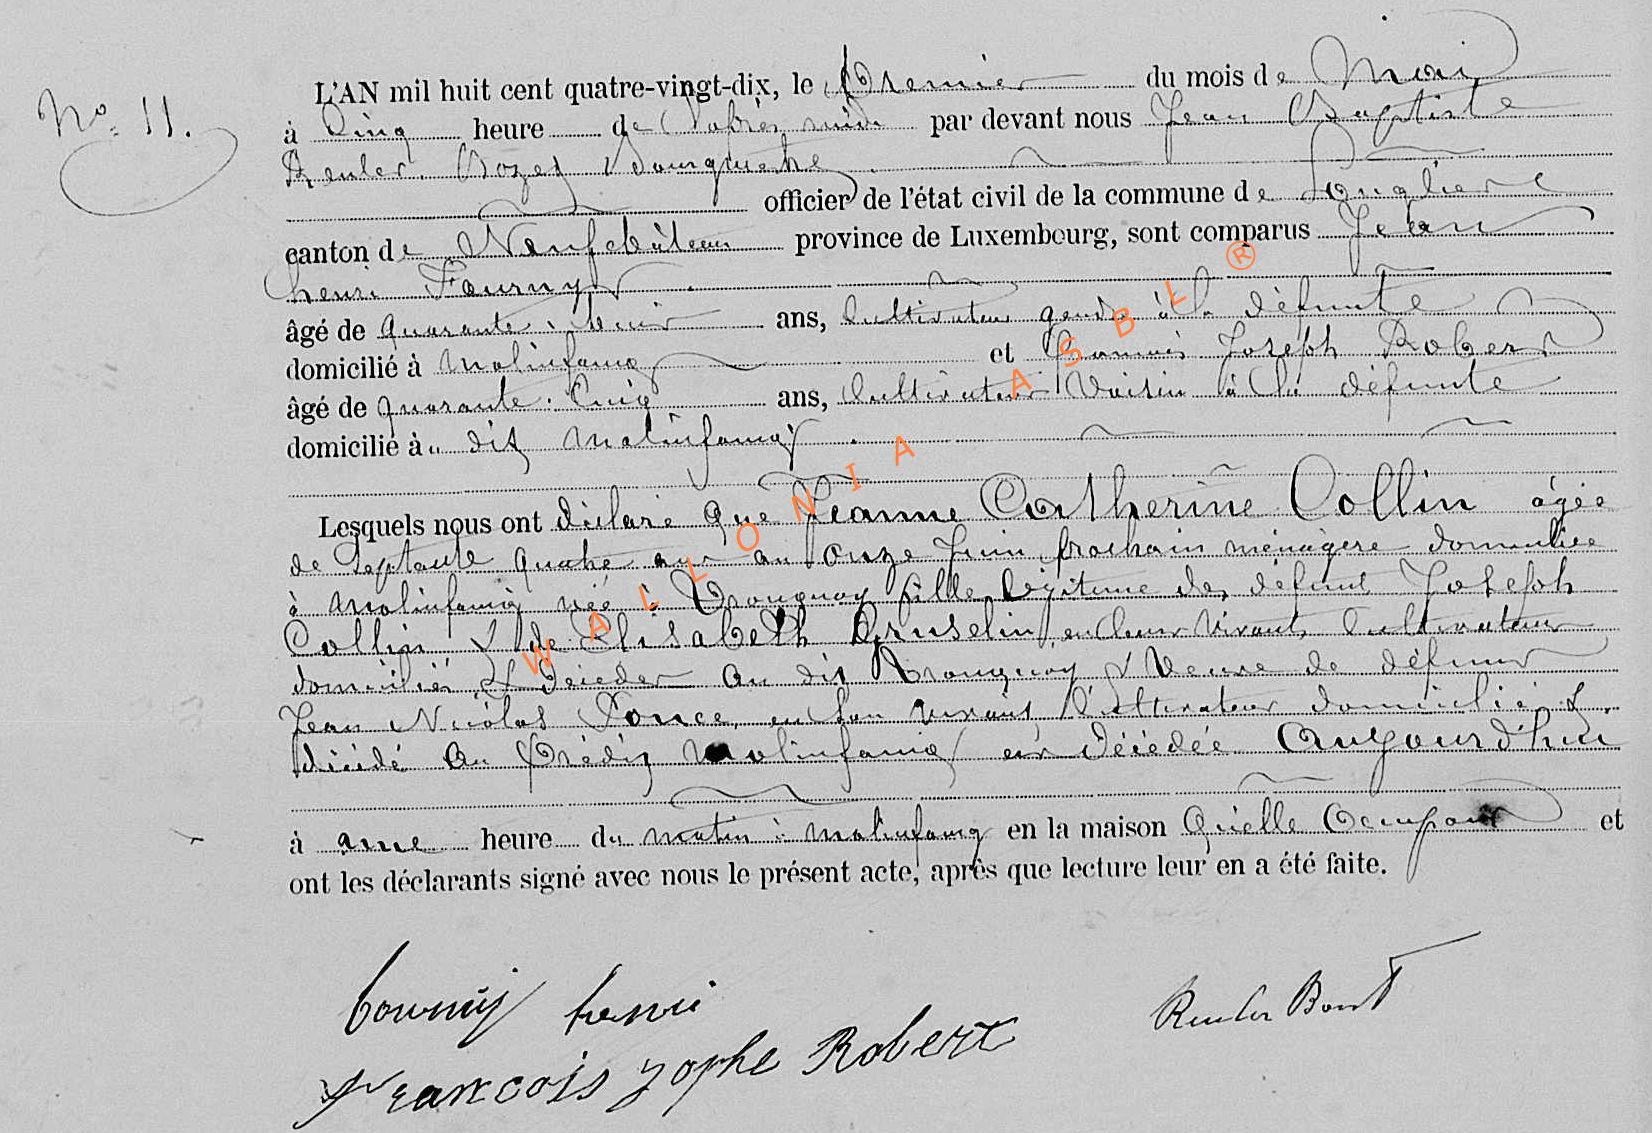 No. 11.
L'AN mil huit cent quatre-vingt-dix, le Premier du mois de Mai
à Cinq heure de l'après midi par devant nous Jean Baptiste
Reuler
officier de l'état civil de la commune de Longlier
canton de Neufchâteau province de Luxembourg, sont comparus Jean
henri Fourny
âgé de quarante ans, Cultivateur gendre à la défunte
domicilié à Molinfaing et François Joseph Robert
âgé de quarante Cinq ans, Cultivateur Voisin à la défunte
domicilié à dit Molinfaing
Lesquels nous ont déclaré que Jeanne Catherine Collin âgée
de Septante quatre ans au onze Juin prochain ménagère domiciliée
à Molinfaing née à Tronquoy fille légitime des défunt Joseph
Collin & de Elisabeth Gruselin en leur vivant Cultivateur
domiciliés & décédés au dit Tronquoy & Veuve de défunt
Jean Nicolas Ponce en son vivant Cultivateur domicilié &
décédé au prédit Molinfaing est décédée Aujourd'hui
à onze heure du matin à Molinfaing en la maison Qu'elle Occupait et
ont les déclarants signé avec nous le présent acte, après que lecture leur en a été faite.
fourny henri
francois Jophe Robert
WALLONIA ASBL ®